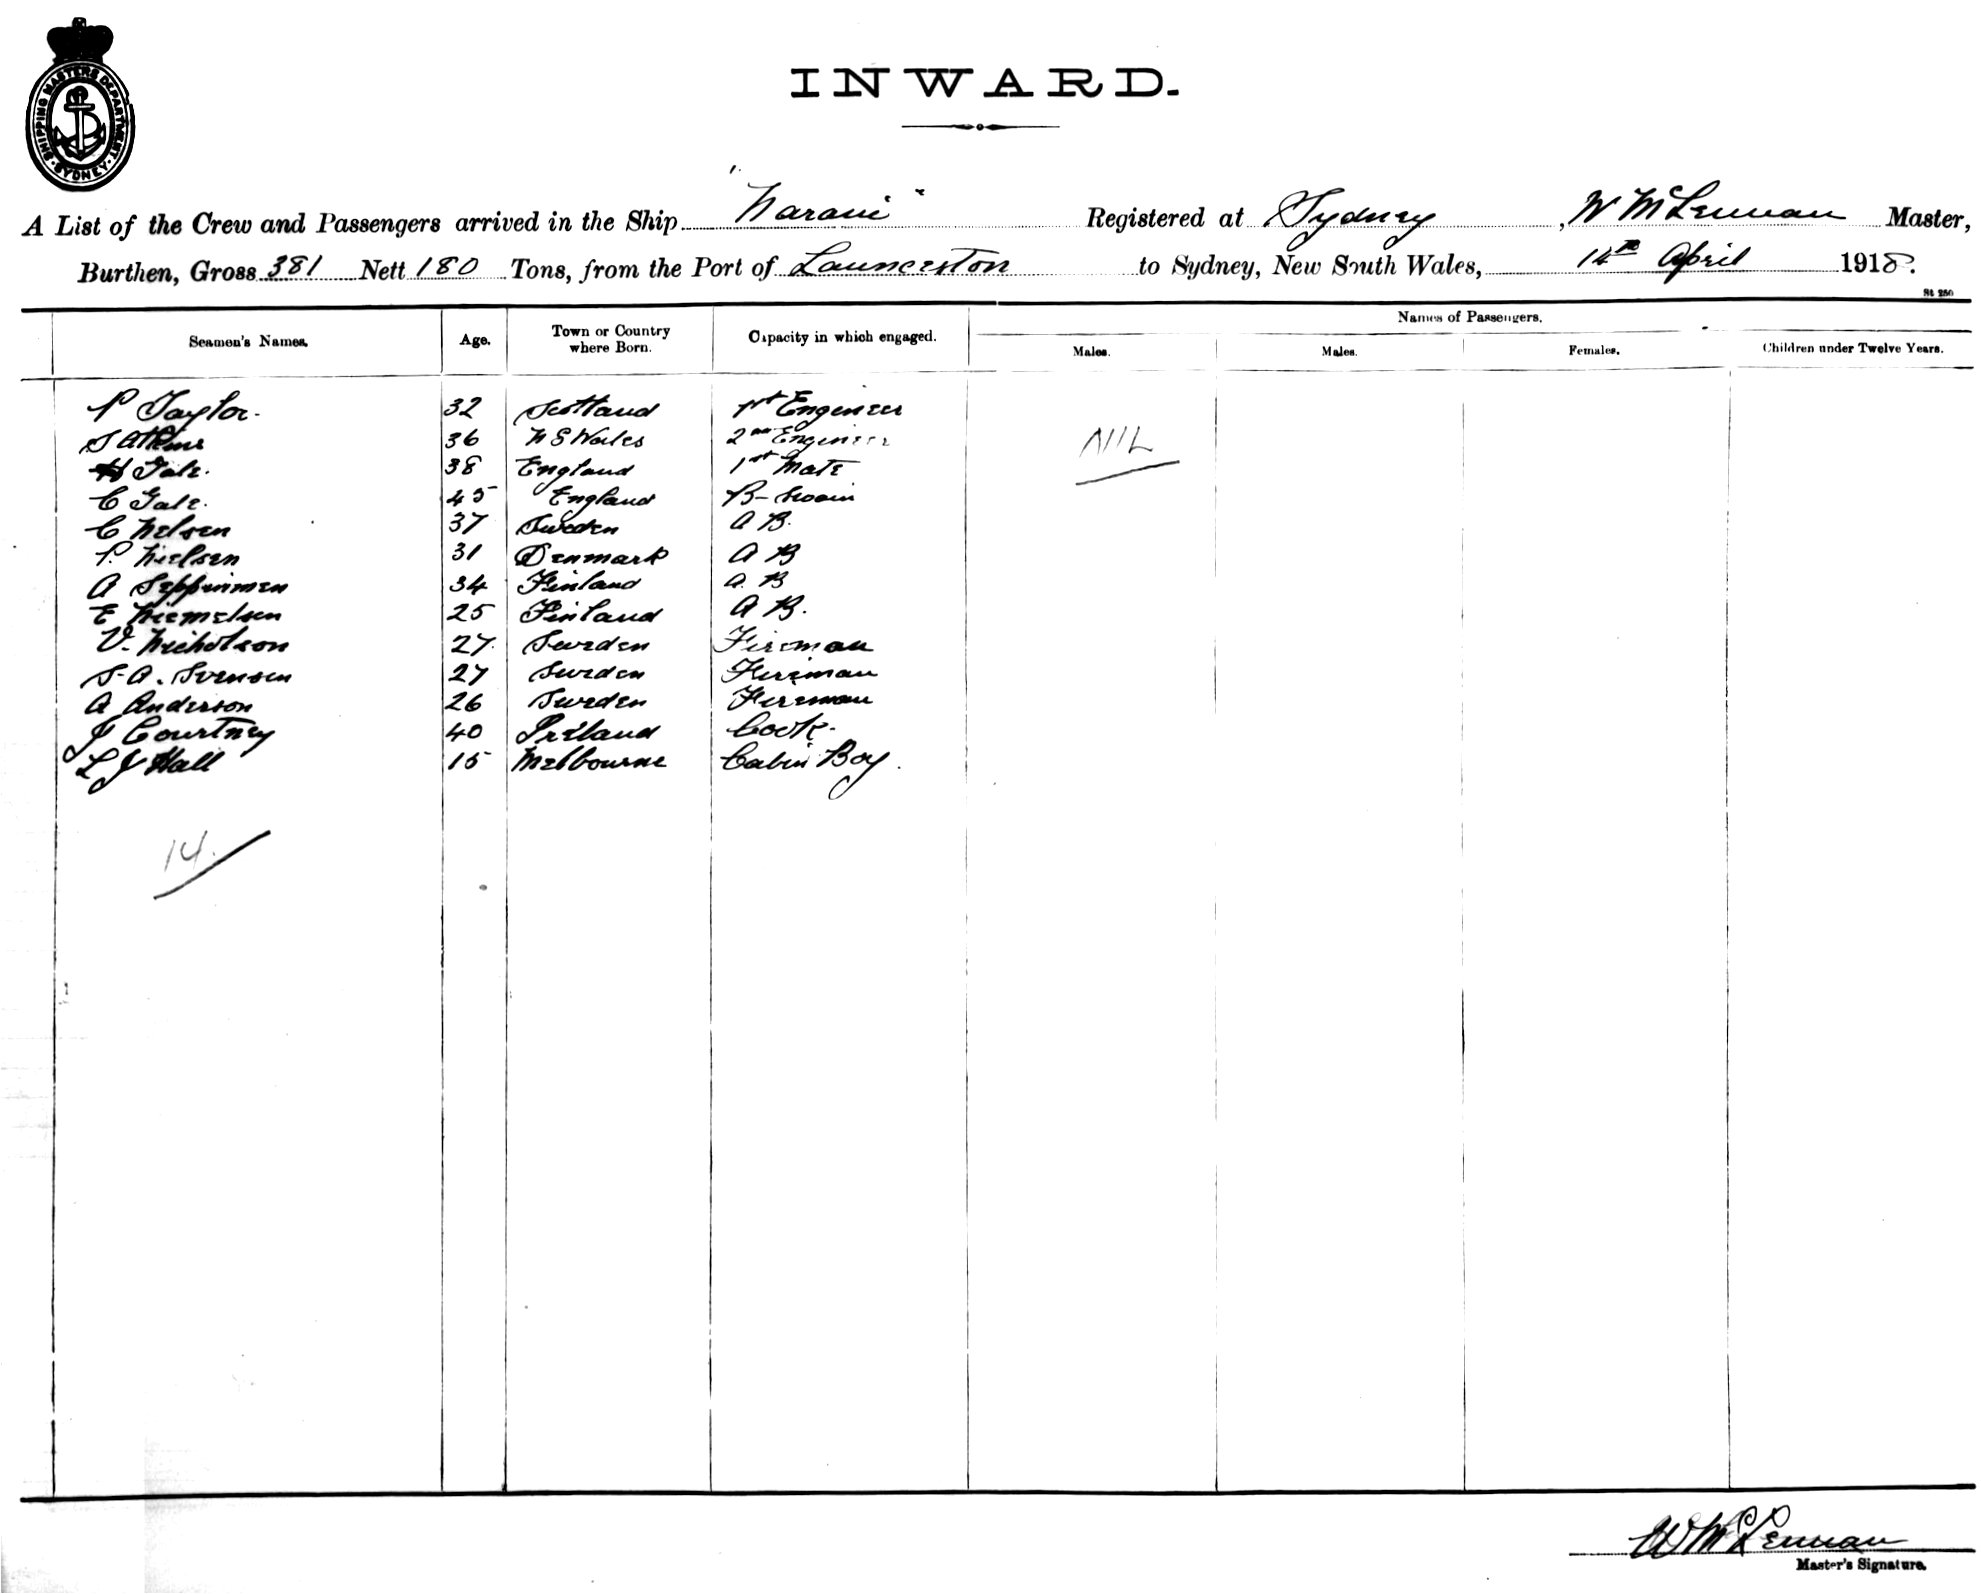 SHIPPING MASTERS DEPARTMENT. SYDNEY.
INWARD.
A List of the Crew and Passengers arrived in the Ship "Narani" Registered at Sydney, W McLennan Master,
Burthen, Gross 381 Nett 180 Tons, from the Port of Launceston to Sydney, New South Wales, 14th April 1918.
St 250
Names of Passengers.
Seamen's Names. Age. Town or Country where Born. Capacity in which engaged. Males. Males. Females. Children under Twelve Years.
P Taylor. 32 Scotland 1st Engineer
S Atkins 36 N S Wales 2nd Engineer
NIL
H Gale. 38 England 1st Mate
C Gale. 45 England B-Swain
C Nelsen 37 Sweden A B.
P. Nielsen 31 Denmark A B
A 34 Finland A. B
E 25 Finland A B.
V. Nicholson 27. Sweden Fireman
S. A. Svensen 27 Sweden Fireman
A Anderson 26 Sweden Fireman
J Courtney 40 Ireland Cook.
L J Hall 15 Melbourne Cabin Boy.
14.
W McLennan
Master's Signature.